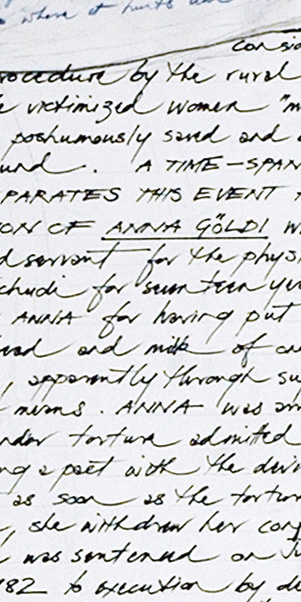 where it hurts
consi
rocedure by the rural
e victimized women "m
poshumously saved and a
und. A TIME-SPAN
PARATES THIS EVENT
ION OF ANNA GÖLDI w
d servant for the physi
chudi for seventeen ye
ANNA for having put
ead and milk of on
, apparently through su
means. ANNA was arr
nder torture admitted
ng a pact with the devi
as soon as the tortur
, she withdrew her con
was sentenced on Ju
182 to execution by de